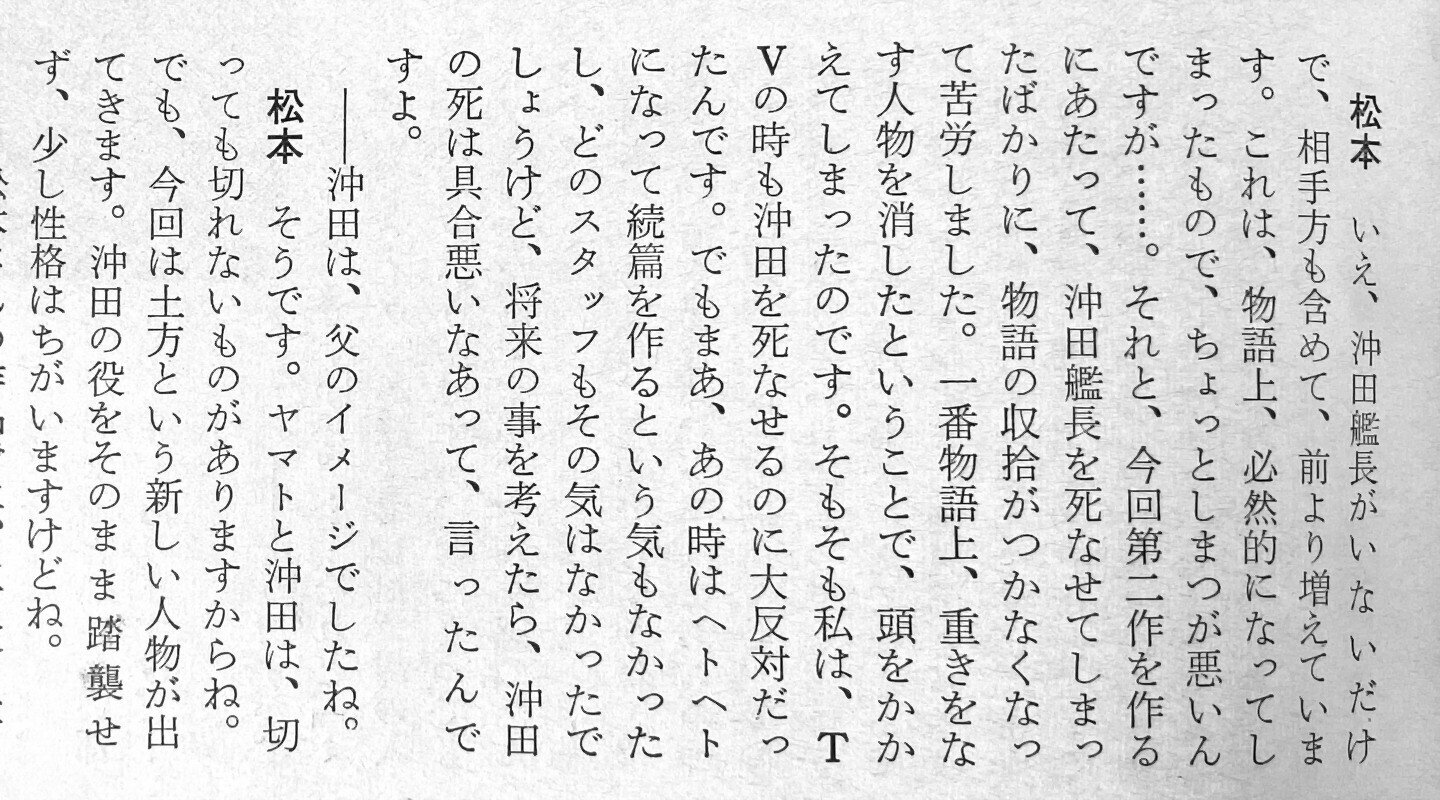 松本　いえ、沖田艦長がいないだけ
で、相手方も含めて、前より増えていま
す。これは、物語上、必然的になってし
まったもので、ちょっとしまつが悪いん
ですが……。それと、今回第二作を作る
にあたって、沖田艦長を死なせてしまっ
たばかりに、物語の収拾がつかなくなっ
て苦労しました。一番物語上、重きをな
す人物を消したということで、頭をかか
えてしまったのです。そもそも私は、T
Vの時も沖田を死なせるのに大反対だっ
たんです。でもまあ、あの時はヘトヘト
になって続篇を作るという気もなかった
し、どのスタッフもその気はなかったで
しょうけど、将来の事を考えたら、沖田
の死は具合悪いなあって、言ったんで
すよ。
――沖田は、父のイメージでしたね。
松本　そうです。ヤマトと沖田は、切
っても切れないものがありますからね。
でも、今回は土方という新しい人物が出
てきます。沖田の役をそのまま踏襲せ
ず、少し性格はちがいますけどね。